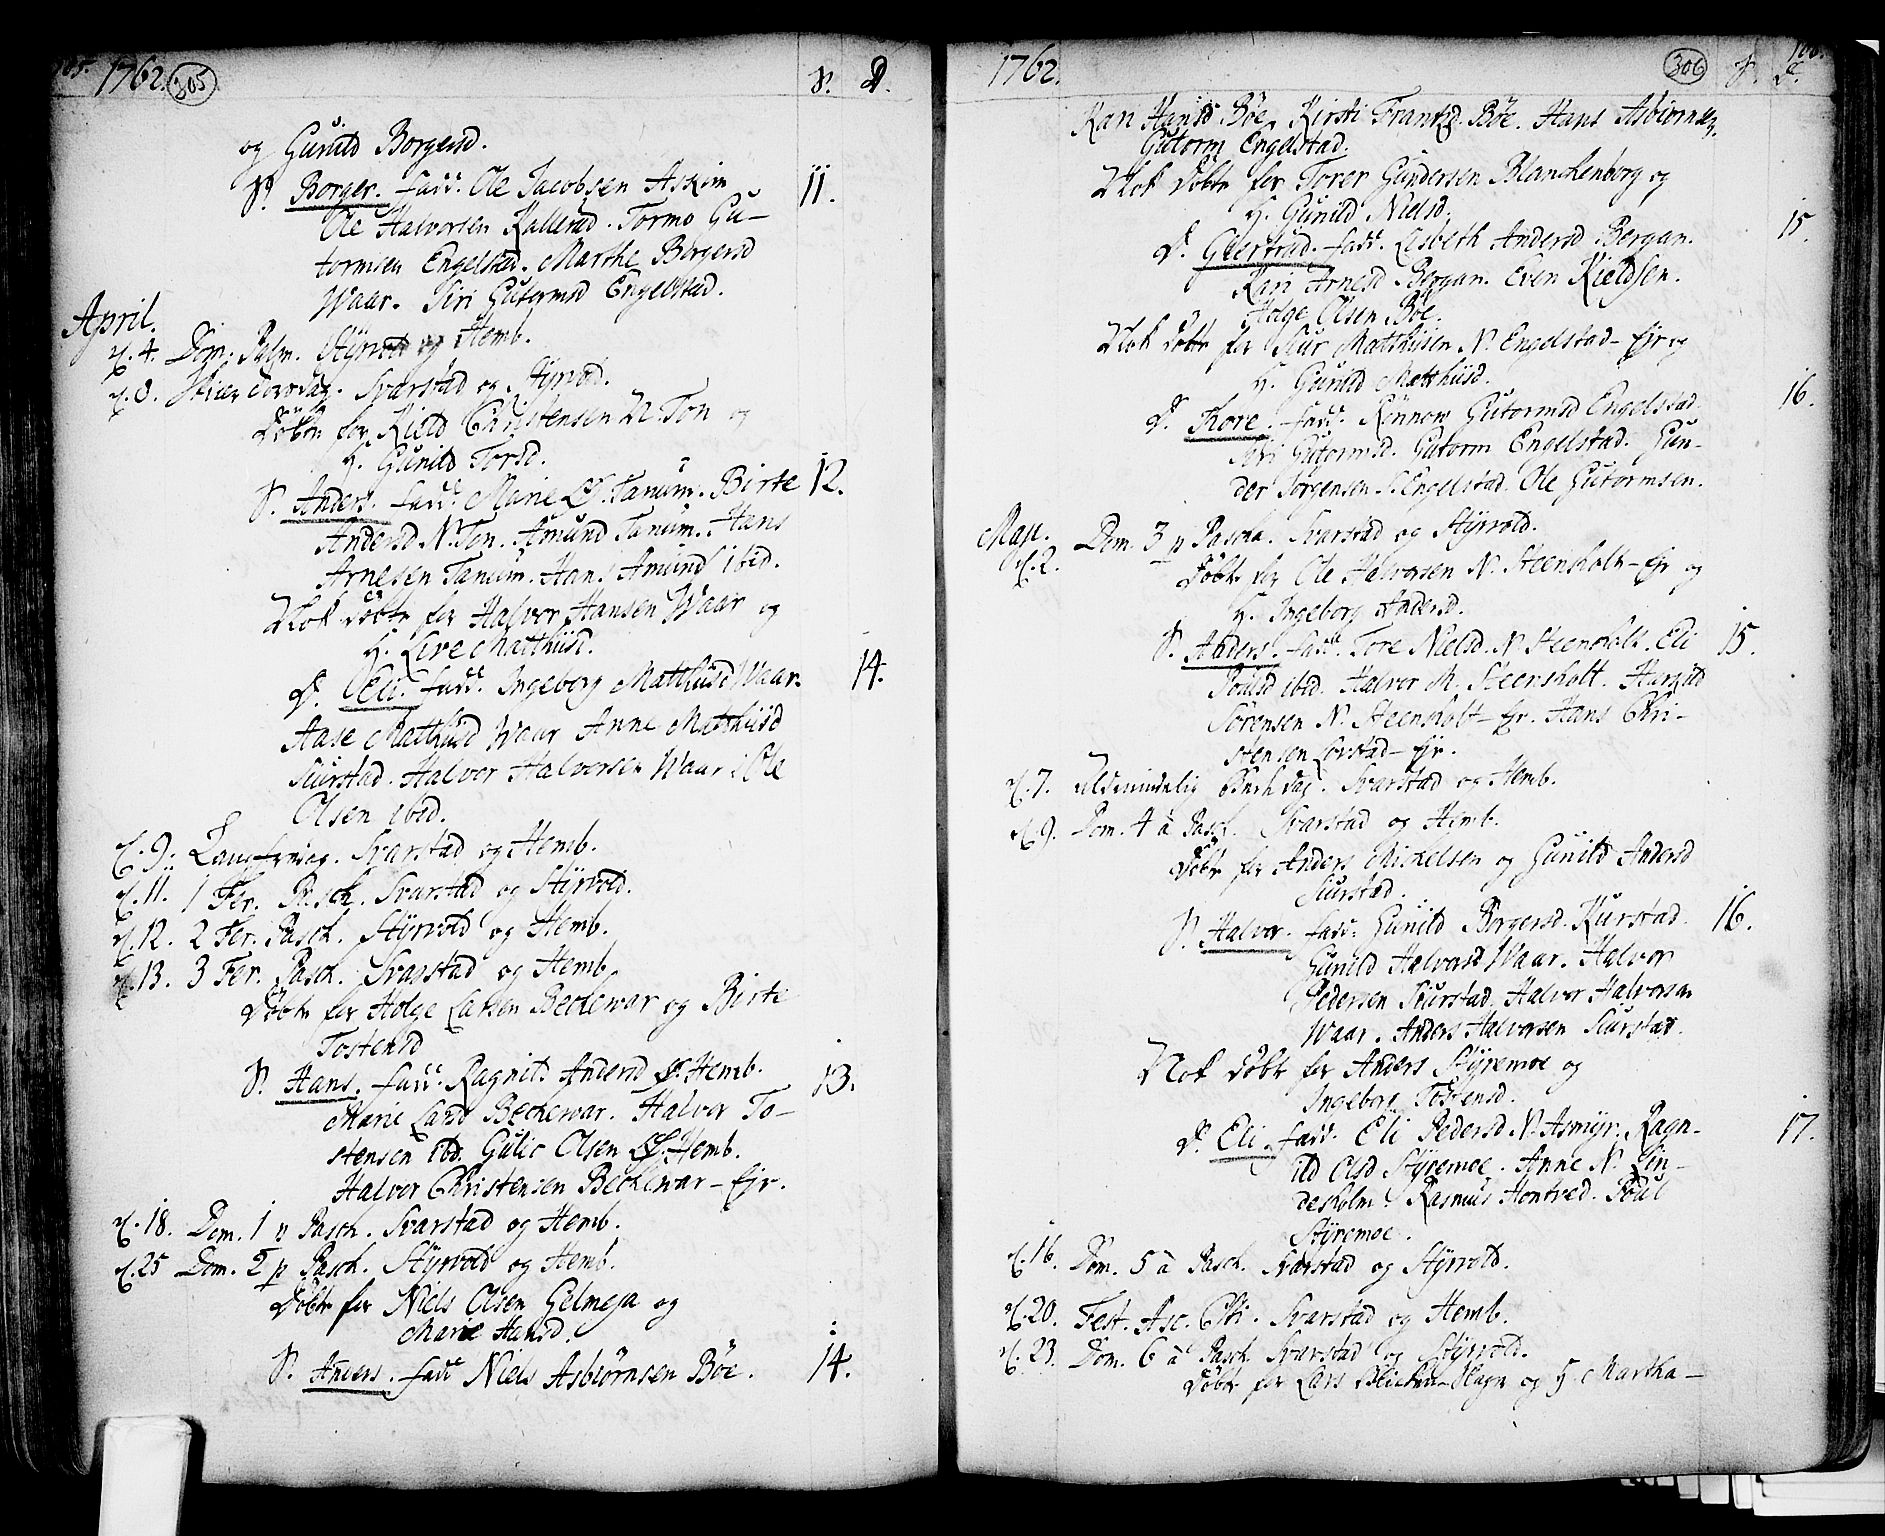 105. 1762. 305 P. D.
og Gunild Borgersd.
P. Borger. fadd. Ole Jacobsen Askim 11.
Ole Halvorsen Kallerud. Tormo Gu-
tormsen Engelstad. Marthe Borgersd
Waar. Siri Gutormsd Engelstad.
April.
d. 4. Dom. Palm. Styrvold og Hemb.
d. 8. Skiær Torsdag. Svarstad og Styrvold.
Døbt for Kield Christensen N. Ton og
H. Gunild Torsd.
P. Anders. fadd. Marie Tanum. Birte 12.
Andersd N. Ton. Amund Tanum. Hans
Arnesen Tanum. Hans Amund ibid.
Nok døbt for Halvor Hansen Waar og
H. Live Matthiisd.
D. Eli. fadd. Ingeborg Matthiisd Waar. 14.
Aase Matthiisd Waar Anne Matthiisd
Siurstad. Halvor Halvorsen Waar Ole
Olsen ibid.
d. 9. Langfredag. Svarstad og Hemb.
d. 11. 1 Fer. Pasch. Svarstad og Styrvold.
d. 12. 2 Fer. Pasch. Styrvold og Hemb.
d. 13. 3 Fer. Pasch. Svarstad og Hemb.
Døbt for Holge Larsen Beckewar og Birte
Tostensd
P. Hans. fadd. Ragnild Andersd Ø. Hemb. 13.
Marie Larsd Beckewar. Halvor To-
stensen ibd. Gulic Olsen Ø. Hemb.
Halvor Christensen Beckewar-Ejr.
d. 18. Dom. 1 p Pasch. Svarstad og Hemb.
d. 25 Dom. 2 p Pasch. Styrvold og Hemb.
Døbt for Niels Olsen Gelmeja og
Marie Hansd.
P. Anders. fadd Niels Asbiørnsen Bøe. 14.
1762. 306 P. D. 106.
Kari Hansd Bøe. Kirsti Frantzd. Bøe. Hans Asbiørnsen.
Gutorm Engelstad.
Nok døbt for Torer Gundersen Blanckenborg og
H. Gunild Nielsd.
D. Geertrud. fadd. Lisbeth Andersd Bergan. 15.
Kari Arnesd Bergan. Even Kieldsen.
Holge Olsen Bøe.
Nok døbt for Siur Matthiisen N. Engelstad-Ejr og
H. Gunild Matthiisd.
D. Thore. fadd. Rønnow Gutormsd Engelstad. 16.
Siri Gutormsd. Gutorm Engelstad. Gun-
der Jorgensen S. Engelstad. Ole Gutormsen.
Maji.
d. 2. Dom. 3 p Pascha. Svarstad og Styrvold.
Døbt for Ole Halvorsen N. Steensholt-Ejr og
H. Ingeborg Andersd.
P. Anders. fadd. Tore Nielsd. N. Steensholt. Eli 15.
Poulsd ibid. Halvor M. Steensholt.
Sørensen N. Steensholt-Ejr. Hans Chri-
stensen Lovstad-Ejr.
d. 7. Almindelig Bededag. Svarstad og Hemb.
d. 9. Dom. 4 à Pasch. Svarstad og Hemb.
Døbt for Anders Mickelsen og Gunild Andersd
Siurstad.
P. Halvor. fadd. Gunild Borgersd. Kurstad. 16.
Gunild Halvorsd Waar. Halvor
Pedersen Siurstad. Halvor Halvorsen
Waar. Anders Halvorsen Siurstad.
Nok døbt for Anders Styremoe og
Ingeborg Tostensd.
D. Eli. fadd. Eli Pedersd N. Asmyr. Ragn- 17.
ild Olsd Styremoe. Anne N. Lin-
desholm. Rasmus Hontved. Poul
Styremoe.
d. 16. Dom. 5 à Pasch. Svarstad og Styrvold.
d. 20. Fest. Asc. Chi. Svarstad og Hemb.
d. 23. Dom. 6 à Pasch. Svarstad og Styrvold.
Døbt for Lars Hagn og H. Martha-